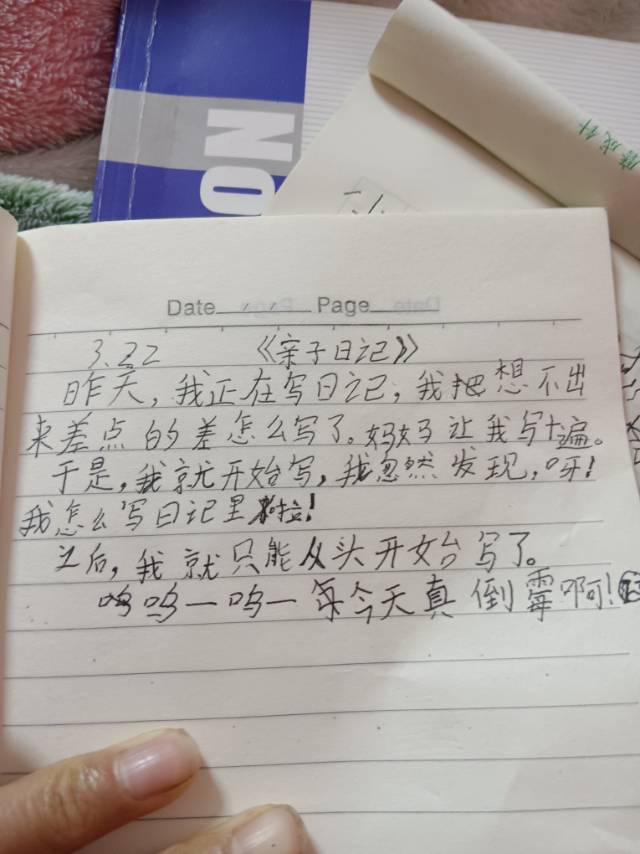 NO
磨成针
Date Page
3.22 《亲子日记》
昨天，我正在写日记，我把想不出
来差点的差怎么写了。妈妈让我写十遍。
于是，我就开始写，我忽然发现，呀！
我怎么写日记里啦！
之后，我就只能从头开始写了。
呜呜一呜一 今天真倒霉啊！